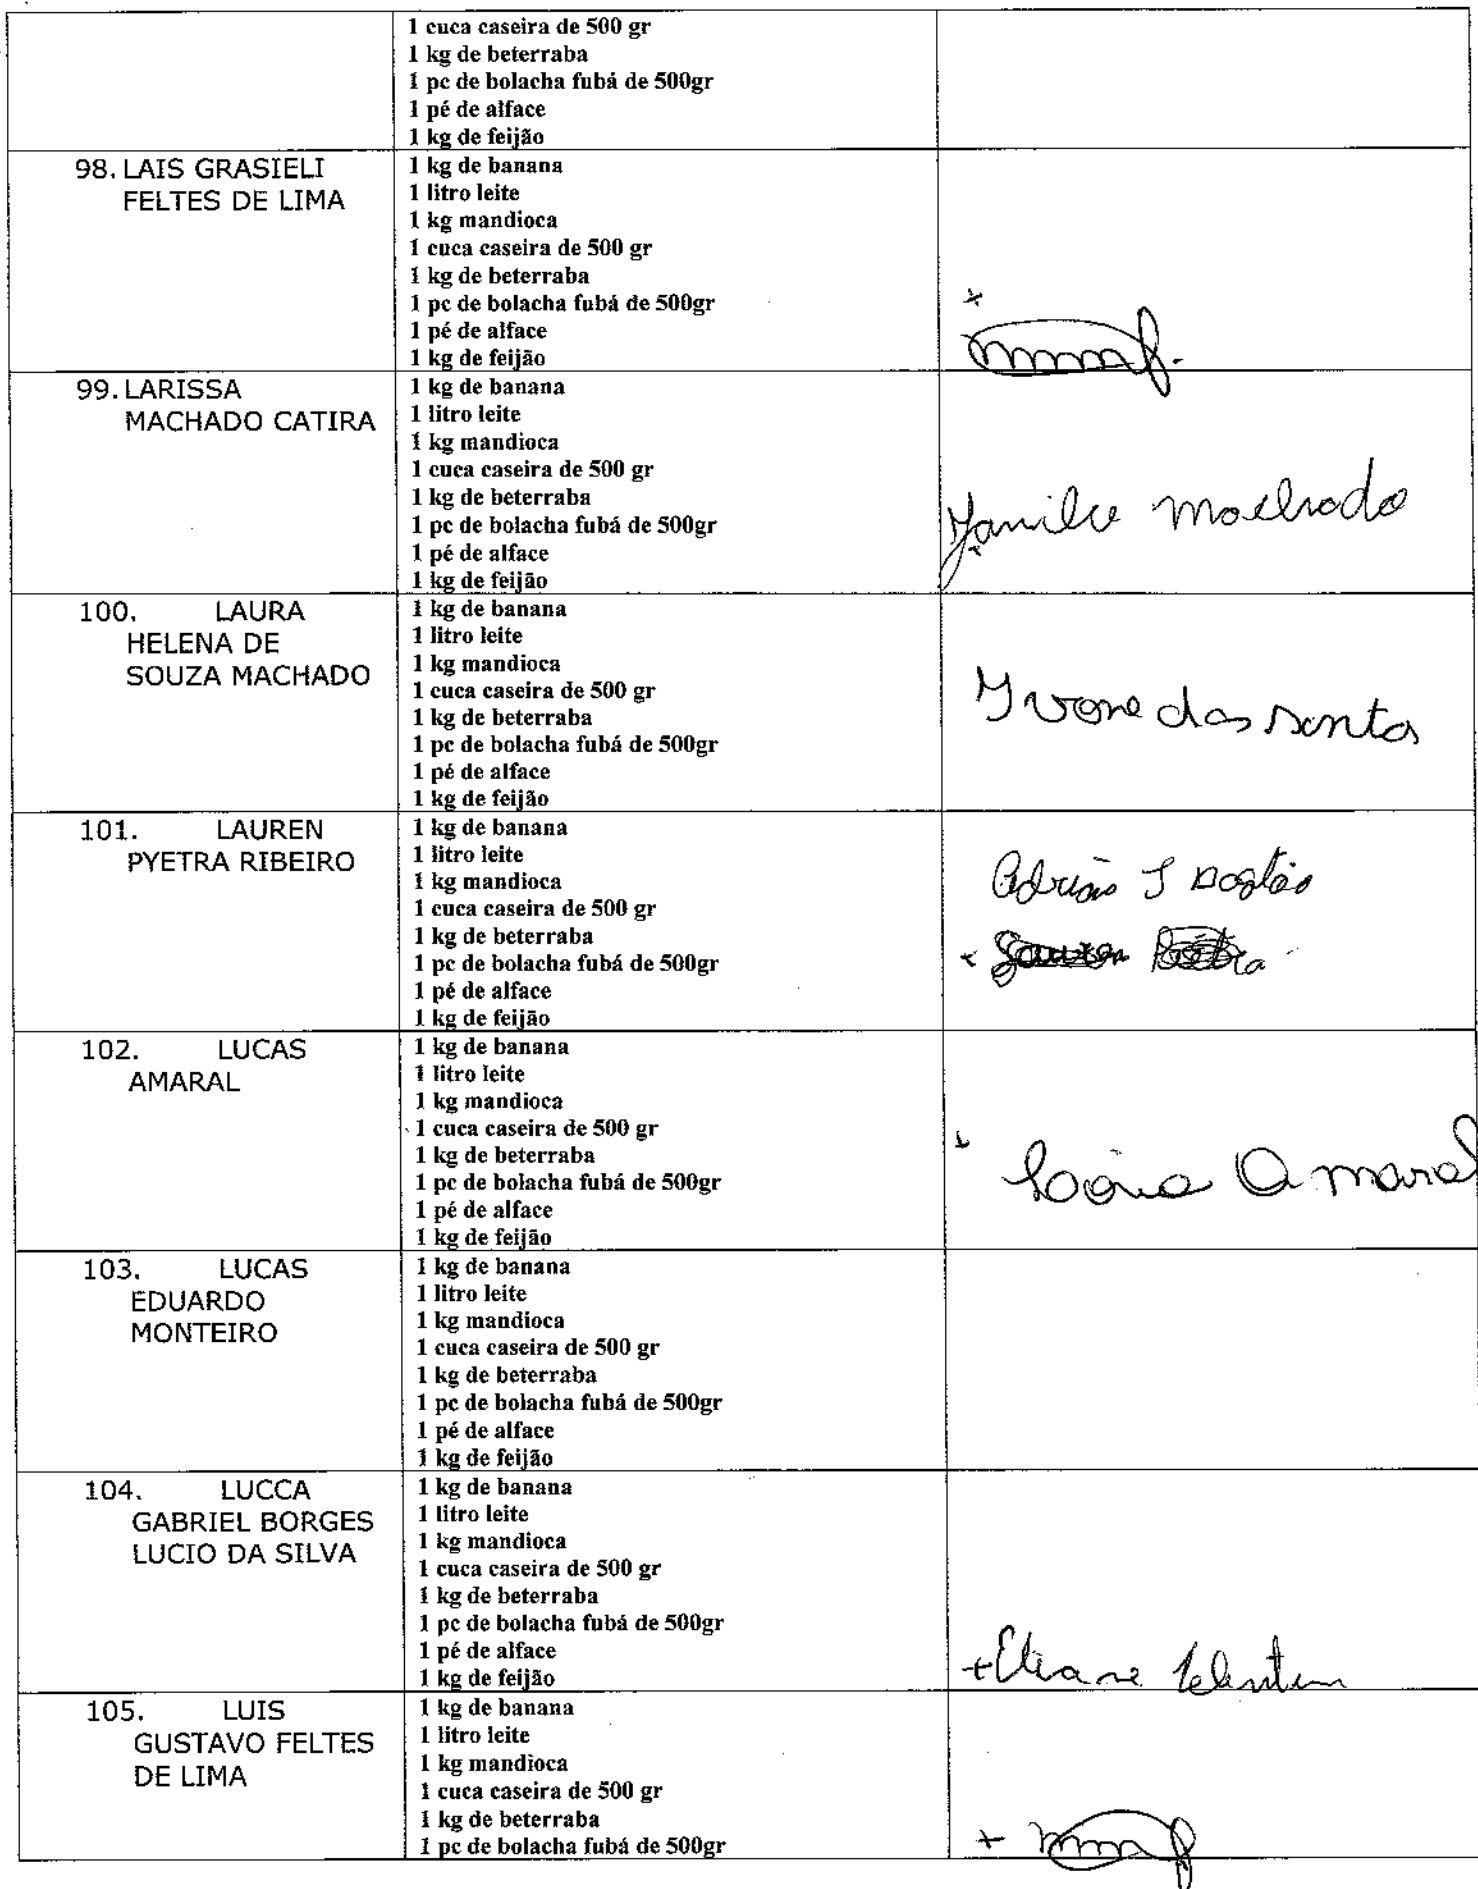 1 cuca caseira de 500 gr
1 kg de beterraba
1 pc de bolacha fubá de 500gr
1 pé de alface
1 kg de feijão
98. LAIS GRASIELI
FELTES DE LIMA
1 kg de banana
1 litro leite
1 kg mandioca
1 cuca caseira de 500 gr
1 kg de beterraba
1 pc de bolacha fubá de 500gr
1 pé de alface
1 kg de feijão
99. LARISSA
MACHADO CATIRA
1 kg de banana
1 litro leite
1 kg mandioca
1 cuca caseira de 500 gr
1 kg de beterraba
1 pc de bolacha fubá de 500gr
1 pé de alface
1 kg de feijão
Machado
100. LAURA
HELENA DE
SOUZA MACHADO
1 kg de banana
1 litro leite
1 kg mandioca
1 cuca caseira de 500 gr
1 kg de beterraba
1 pc de bolacha fubá de 500gr
1 pé de alface
1 kg de feijão
Yvone dos santos
101. LAUREN
PYETRA RIBEIRO
1 kg de banana
1 litro leite
1 kg mandioca
1 cuca caseira de 500 gr
1 kg de beterraba
1 pc de bolacha fubá de 500gr
1 pé de alface
1 kg de feijão
102. LUCAS
AMARAL
1 kg de banana
1 litro leite
1 kg mandioca
1 cuca caseira de 500 gr
1 kg de beterraba
1 pc de bolacha fubá de 500gr
1 pé de alface
1 kg de feijão
Amaral
103. LUCAS
EDUARDO
MONTEIRO
1 kg de banana
1 litro leite
1 kg mandioca
1 cuca caseira de 500 gr
1 kg de beterraba
1 pc de bolacha fubá de 500gr
1 pé de alface
1 kg de feijão
104. LUCCA
GABRIEL BORGES
LUCIO DA SILVA
1 kg de banana
1 litro leite
1 kg mandioca
1 cuca caseira de 500 gr
1 kg de beterraba
1 pc de bolacha fubá de 500gr
1 pé de alface
1 kg de feijão
Eliane
105. LUIS
GUSTAVO FELTES
DE LIMA
1 kg de banana
1 litro leite
1 kg mandioca
1 cuca caseira de 500 gr
1 kg de beterraba
1 pc de bolacha fubá de 500gr